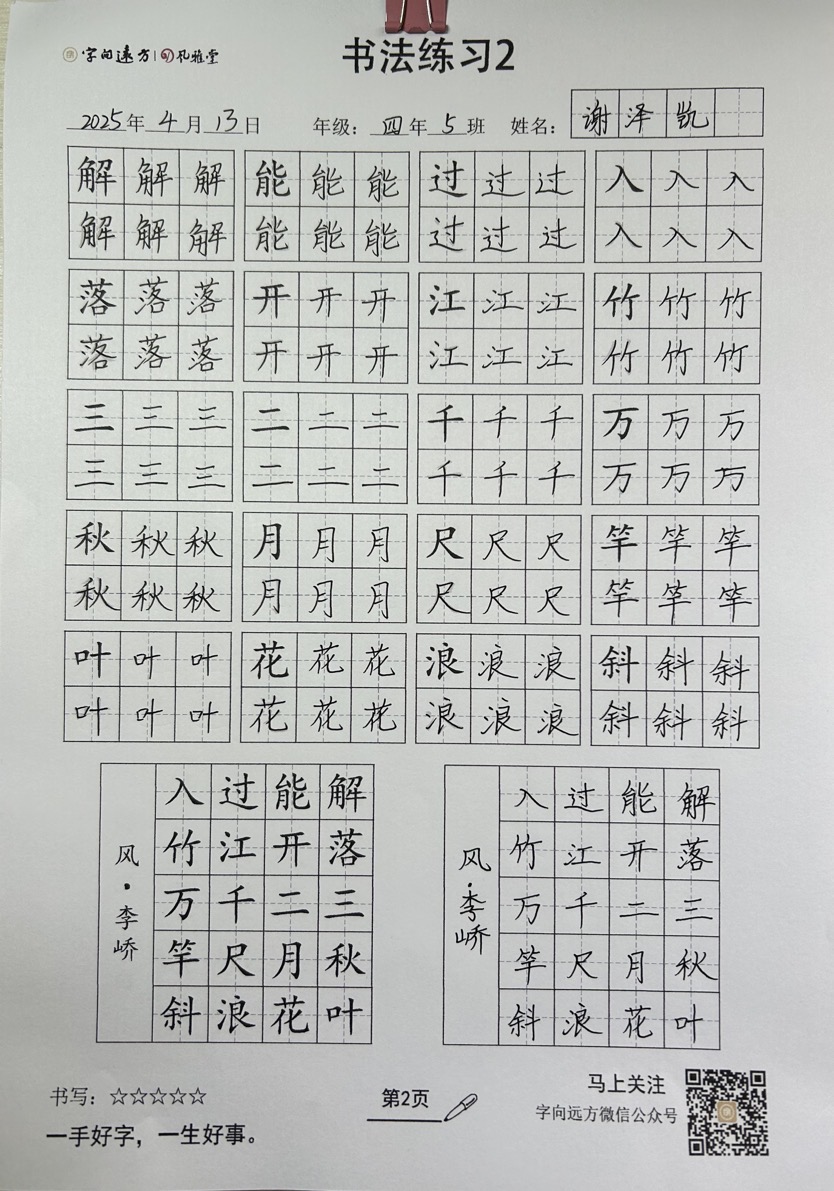 字向遠方 | 风雅堂
书法练习2
2025年4月13日 年级：四年5班 姓名：谢泽凯
解解解 能能能 过过过 入入入
解解解 能能能 过过过 入入入
落落落 开开开 江江江 竹竹竹
落落落 开开开 江江江 竹竹竹
三三三 二二二 千千千 万万万
三三三 二二二 千千千 万万万
秋秋秋 月月月 尺尺尺 竿竿竿
秋秋秋 月月月 尺尺尺 竿竿竿
叶叶叶 花花花 浪浪浪 斜斜斜
叶叶叶 花花花 浪浪浪 斜斜斜
解落三秋叶
能开二月花
过江千尺浪
入竹万竿斜
风·李峤
解落三秋叶
能开二月花
过江千尺浪
入竹万竿斜
风·李峤
书写：☆☆☆☆☆
一手好字，一生好事。
第2页
马上关注
字向远方微信公众号